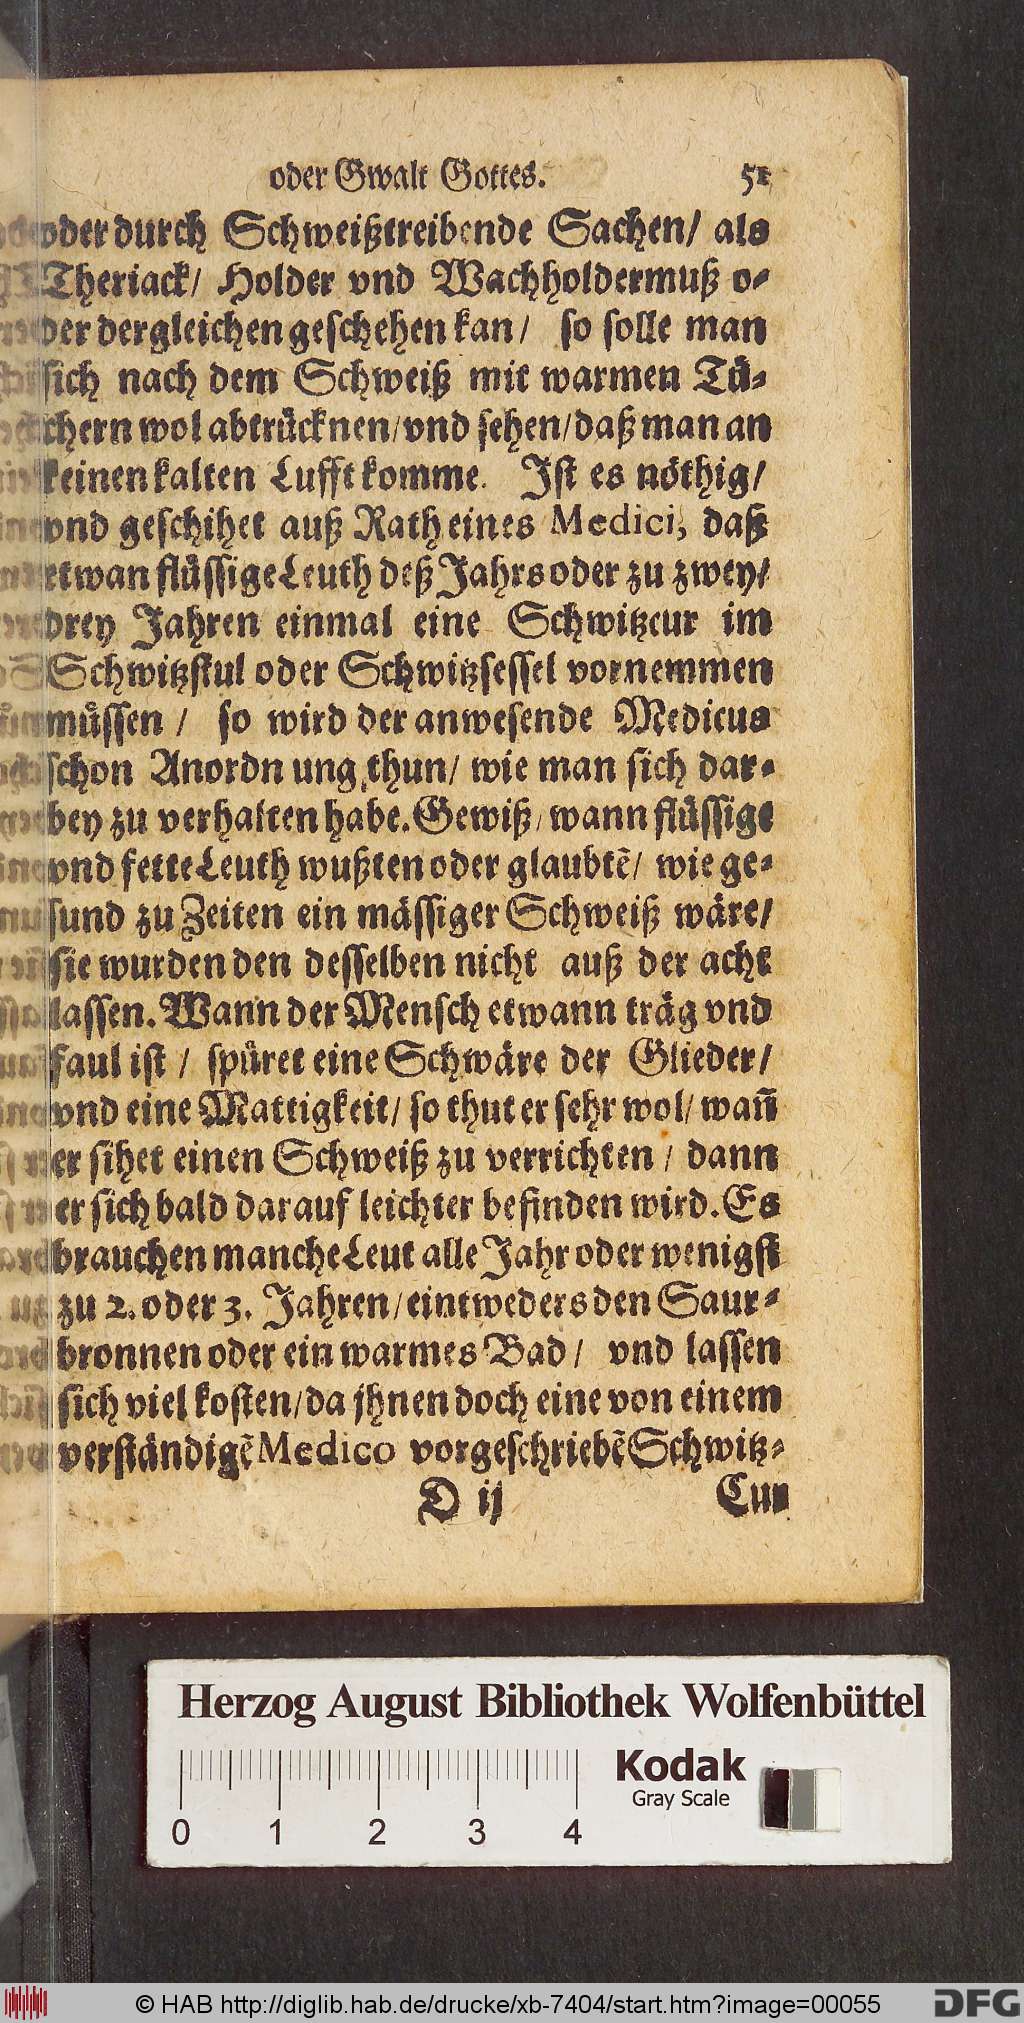 oder Gwalt Gottes. 51
oder durch Schweißtreibende Sachen/ als
Theriack/ Holder vnd Wachholdermuß o-
der dergleichen geschehen kan/ so solle man
sich nach dem Schweiß mit warmen Tü-
chern wol abtrücknen/ vnd sehen/ daß man an
keinen kalten Lufft komme. Ist es nöthig/
vnd geschihet auß Rath eines Medici, daß
etwan flüssige Leuth deß Jahrs oder zu zwey/
drey Jahren einmal eine Schwitzcur im
Schwitzstul oder Schwitzsessel vornemmen
müssen/ so wird der anwesende Medicus
schon Anordnung thun/ wie man sich dar-
bey zu verhalten habe. Gewiß/ wann flüssige
vnd fette Leuth wußten oder glaubtẽ/ wie ge-
sund zu Zeiten ein mässiger Schweiß wäre/
sie wurden den desselben nicht auß der acht
lassen. Wann der Mensch etwann träg vnd
faul ist/ spüret eine Schwäre der Glieder/
vnd eine Mattigkeit/ so thut er sehr wol/ wañ
er sihet einen Schweiß zu verrichten/ dann
er sich bald darauf leichter befinden wird. Es
brauchen manche Leut alle Jahr oder wenigst
zu 2. oder 3. Jahren/ eintweders den Saur-
bronnen oder ein warmes Bad/ vnd lassen
sich viel kosten/ da jhnen doch eine von einem
verständigẽ Medico vorgeschriebẽ Schwitz-
D ij Cur
Herzog August Bibliothek Wolfenbüttel
Kodak
Gray Scale
0 1 2 3 4
© HAB http://diglib.hab.de/drucke/xb-7404/start.htm?image=00055
DFG